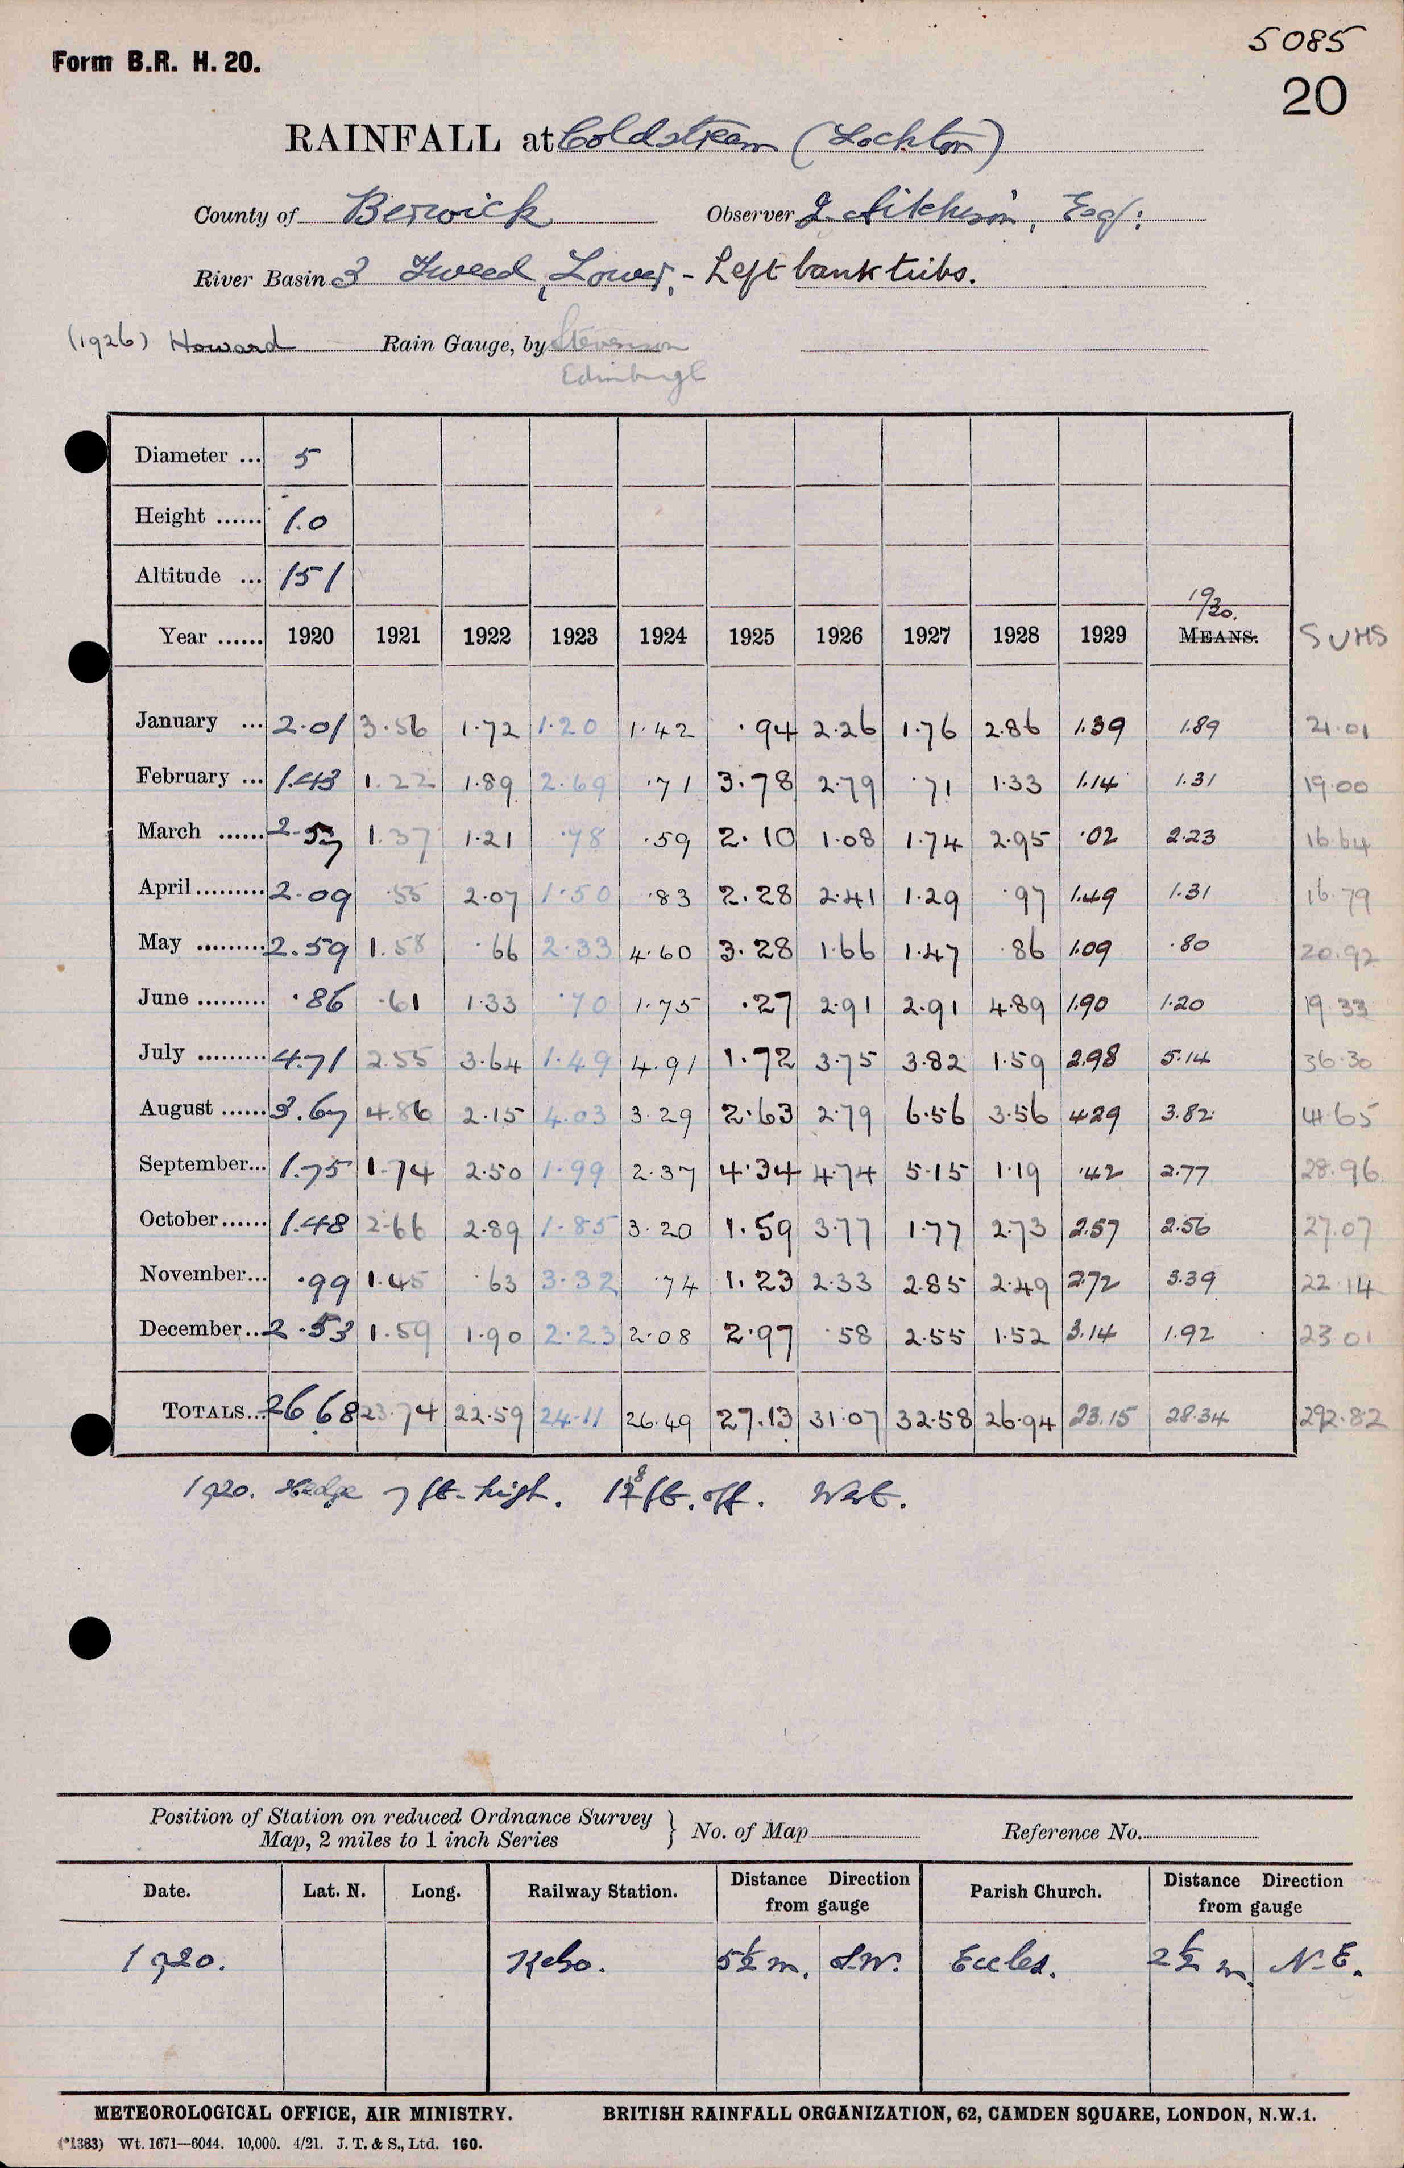 5085
Form B.R. H. 20.
20
RAINFALL at Coldstream (Lochton)
County of Berwick Observer J. Aitchison, Esq:
River Basin 3 Tweed, Lower, - Left bank tribs.
(1926) Howard Rain Gauge, by Stevenson
Edinburgh
Diameter ... 5
Height ...... 1.0
Altitude ... 151
19/30.
Year ...... 1920 1921 1922 1923 1924 1925 1926 1927 1928 1929 MEANS. SUMS
January ... 2.01 3.56 1.72 1.20 1.42 .94 2.26 1.76 2.86 1.39 1.89 21.01
February ... 1.43 1.22 1.89 2.69 .71 3.78 2.79 .71 1.33 1.14 1.31 19.00
March ...... 2.57 1.37 1.21 .78 .59 2.10 1.08 1.74 2.95 .02 2.23 16.64
April ......... 2.09 .55 2.07 1.50 .83 2.28 2.41 1.29 .97 1.49 1.31 16.79
May ......... 2.59 1.58 .66 2.33 4.60 3.28 1.66 1.47 .86 1.09 .80 20.92
June ......... .86 .61 1.33 .70 1.75 .27 2.91 2.91 4.89 1.90 1.20 19.33
July ......... 4.71 2.55 3.64 1.49 4.91 1.72 3.75 3.82 1.59 2.98 5.14 36.30
August ...... 3.67 4.86 2.15 4.03 3.29 2.63 2.79 6.56 3.56 4.29 3.82 41.65
September... 1.75 1.74 2.50 1.99 2.37 4.34 4.74 5.15 1.19 .42 2.77 28.96
October...... 1.48 2.66 2.89 1.85 3.20 1.59 3.77 1.77 2.73 2.57 2.56 27.07
November... .99 1.45 .63 3.32 .74 1.23 2.33 2.85 2.49 2.72 3.39 22.14
December... 2.53 1.59 1.90 2.23 2.08 2.97 .58 2.55 1.52 3.14 1.92 23.01
TOTALS... 26.68 23.74 22.59 24.11 26.49 27.13 31.07 32.58 26.94 23.15 28.34 292.82
1920. Hedge 7 ft. high. ft. off. West.
Position of Station on reduced Ordnance Survey
Map, 2 miles to 1 inch Series } No. of Map Reference No.
Date. Lat. N. Long. Railway Station. Distance Direction from gauge Parish Church. Distance Direction from gauge
1920. Kelso. 5½ m. S.W. Eccles. 2½ m. N.E.
METEOROLOGICAL OFFICE, AIR MINISTRY. BRITISH RAINFALL ORGANIZATION, 62, CAMDEN SQUARE, LONDON, N.W.1.
(*1383) Wt. 1671—6044. 10,000. 4/21. J. T. & S., Ltd. 160.